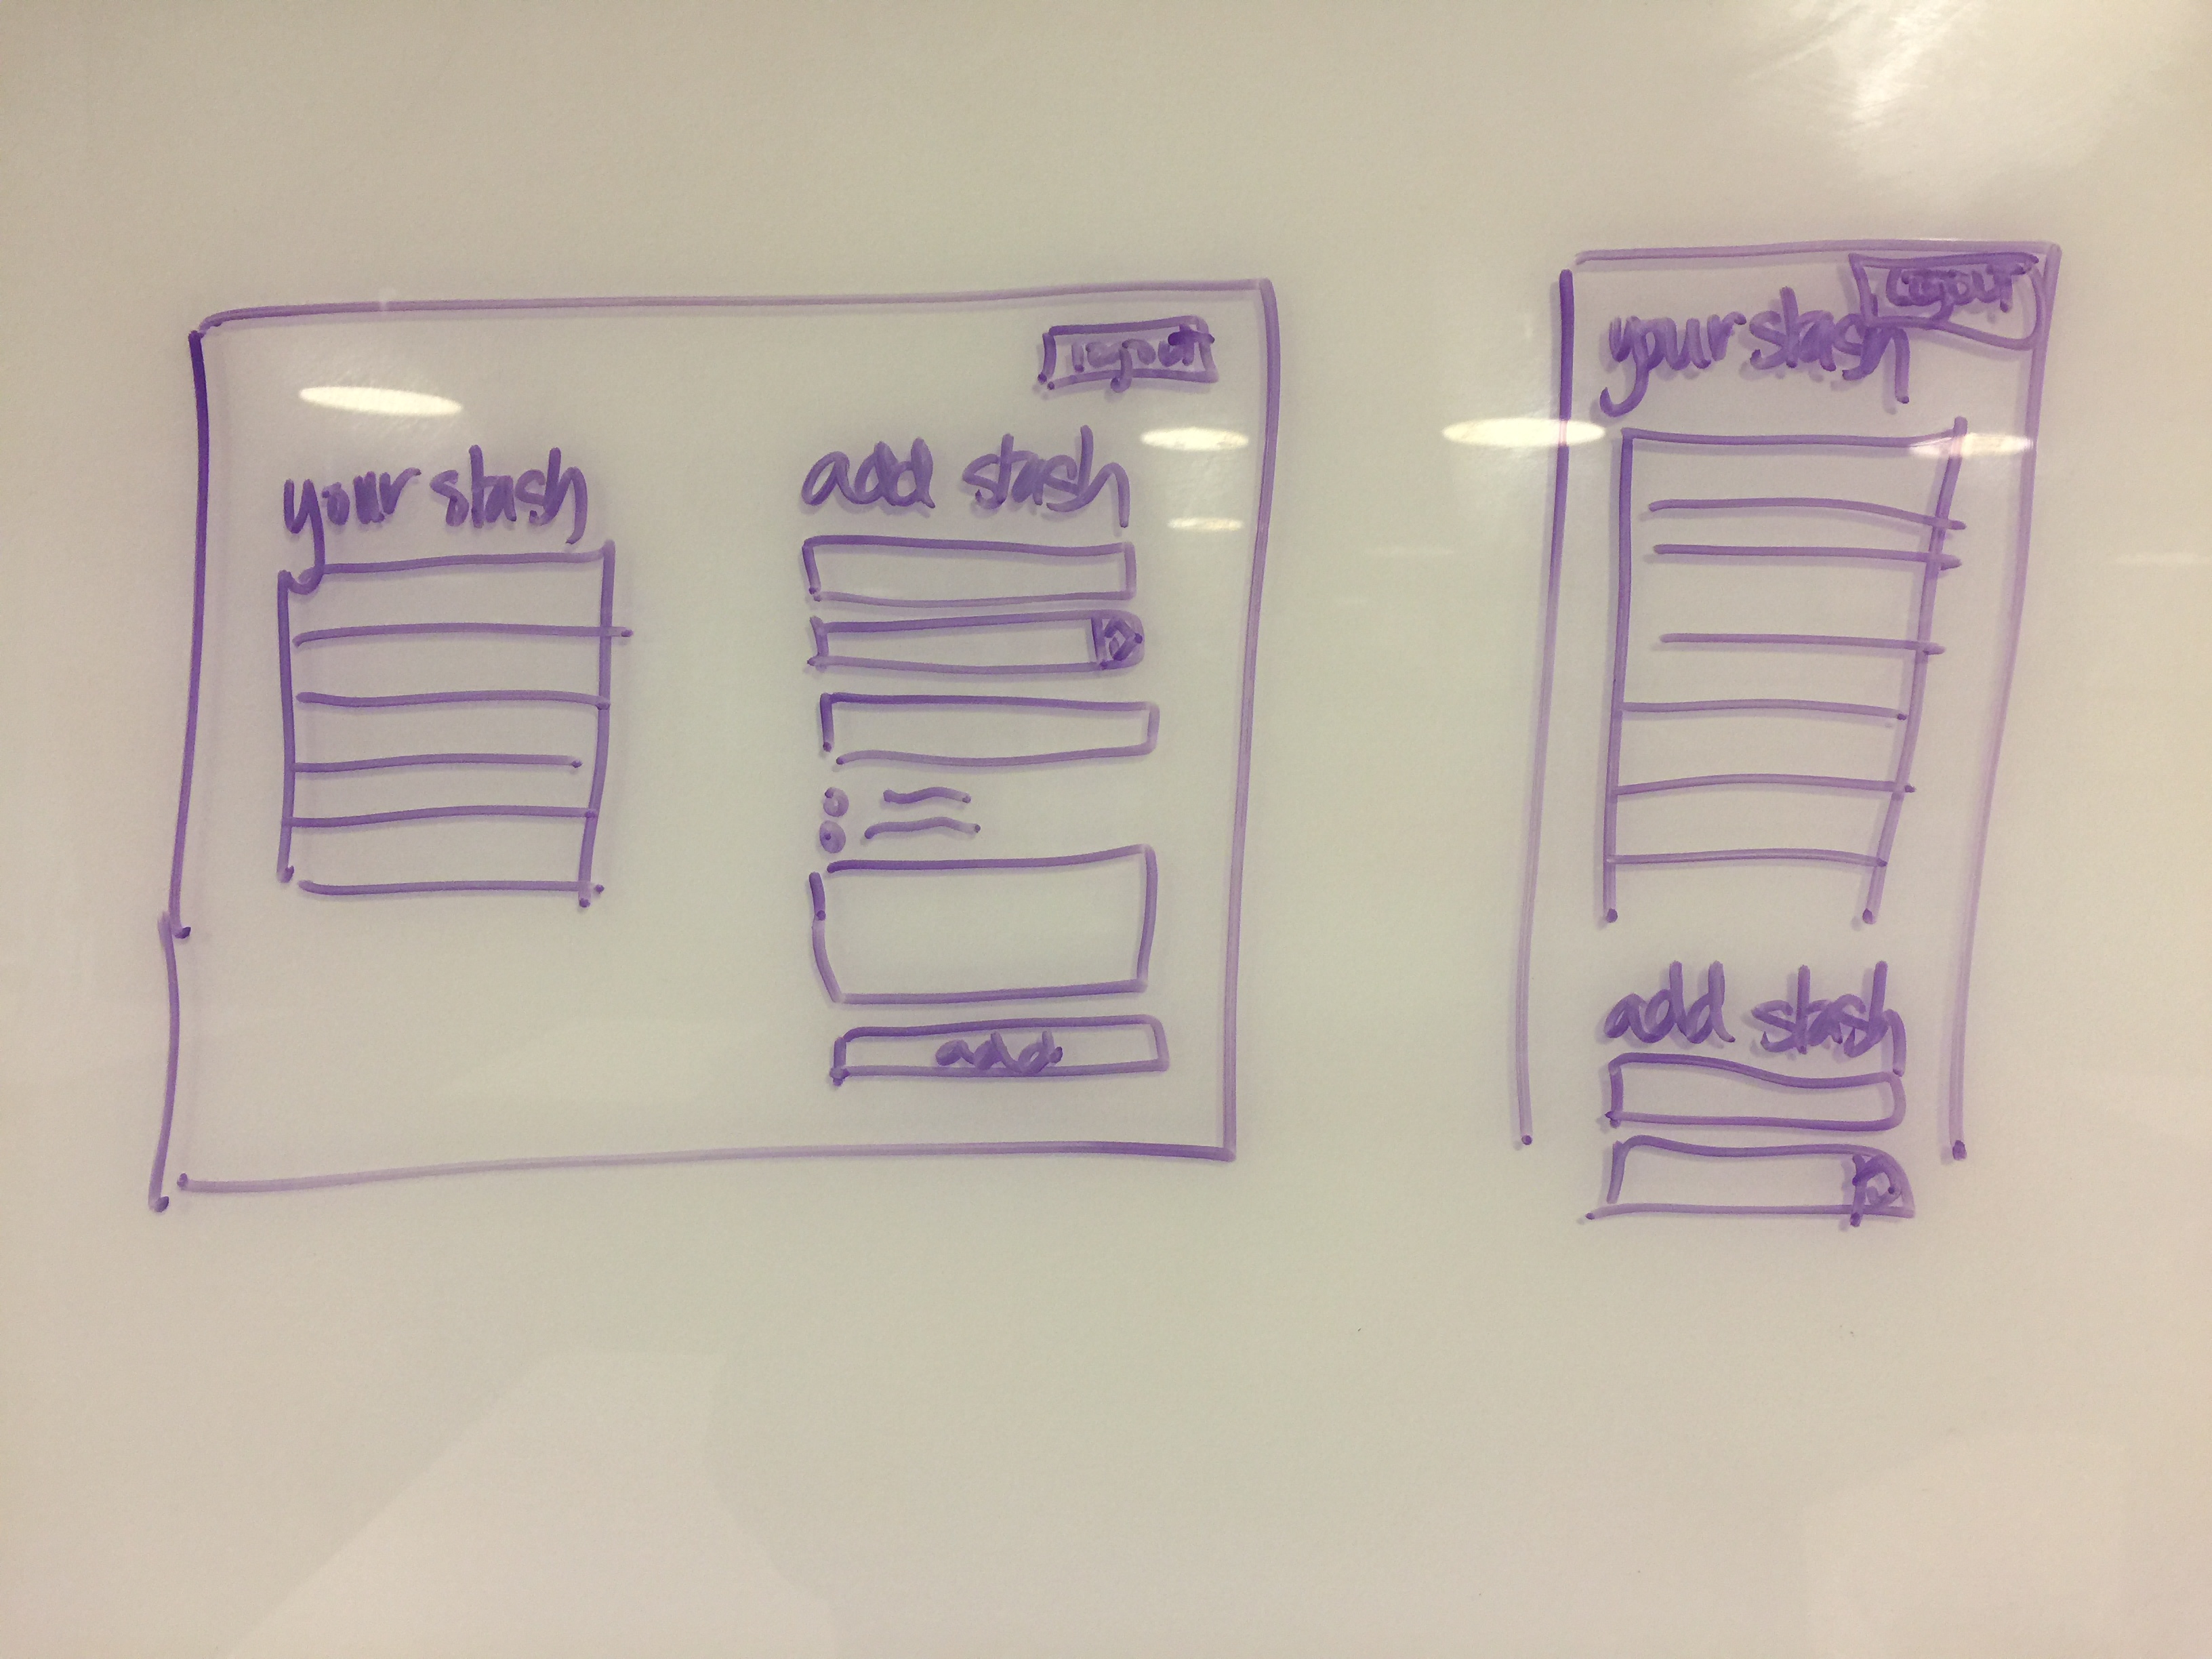 logout
your stash
add stash
add
logout
your stash
add stash